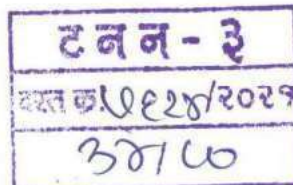 ट न न - ३
दस्त क्र. ५६२४/२०२१
३४/८०